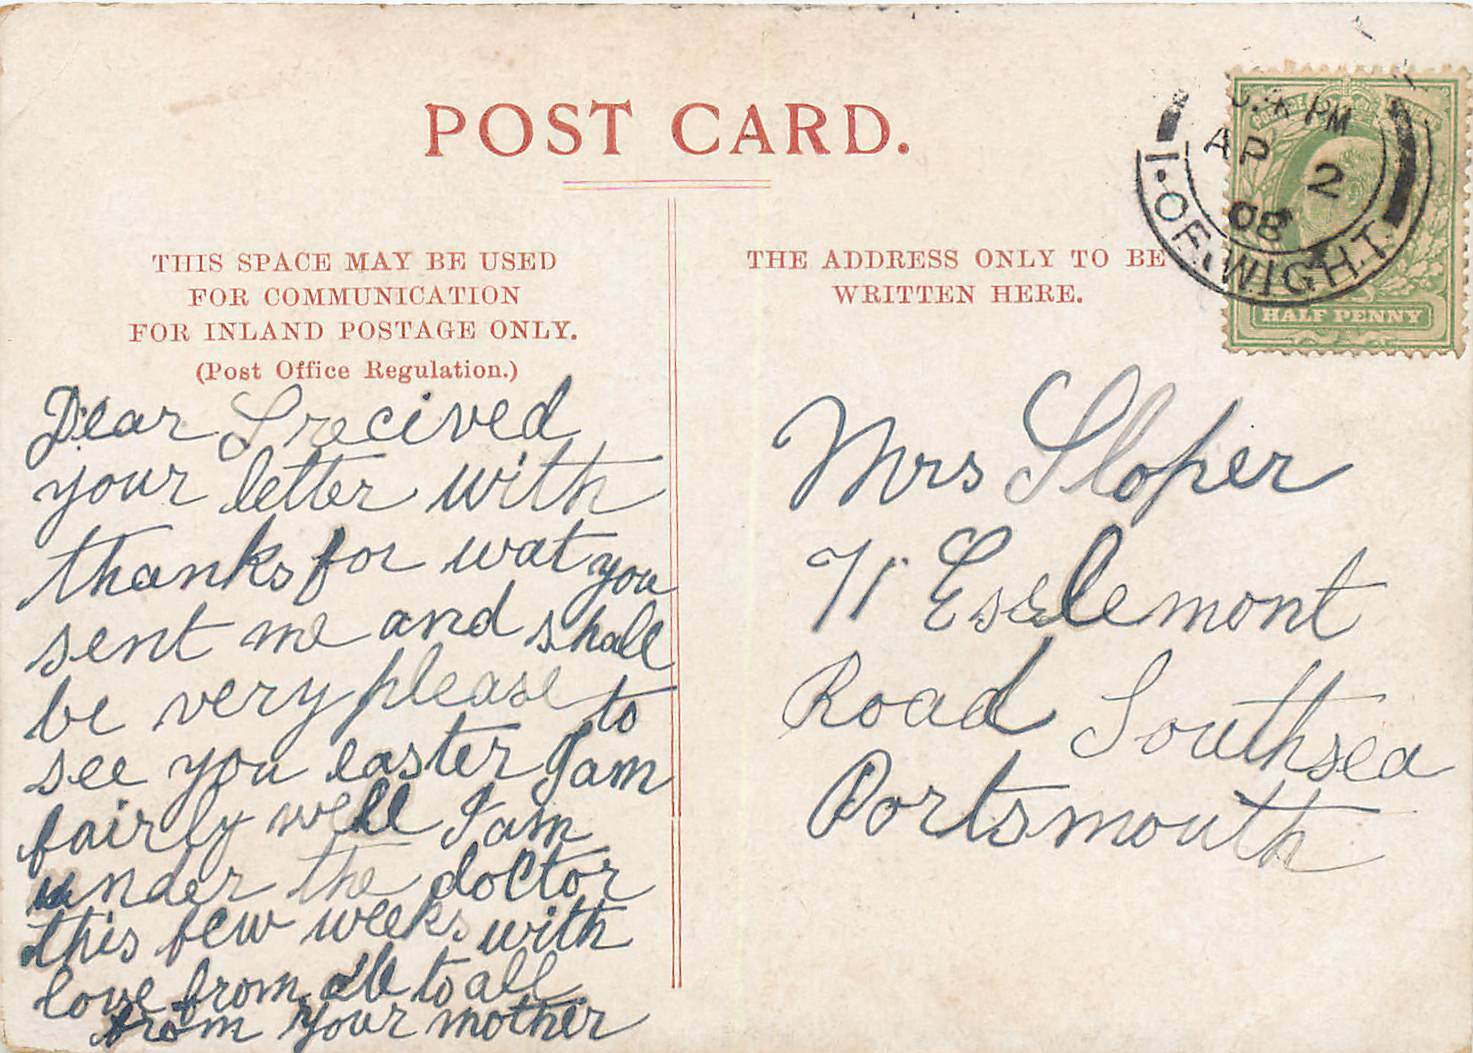 POST CARD.
THIS SPACE MAY BE USED
FOR COMMUNICATION
FOR INLAND POSTAGE ONLY.
(Post Office Regulation.)
Dear I recived
your letter with
thanks for wat you
sent me and shall
be very please to
see you easter I am
fairly well I am
under the doctor
this few weeks with
love from all to all
from your mother
THE ADDRESS ONLY TO BE
WRITTEN HERE.
PM
AP 2
08
I. OF. WIGHT
HALF PENNY
Mrs Sloper
71 Esslemont
Road Southsea
Portsmouth